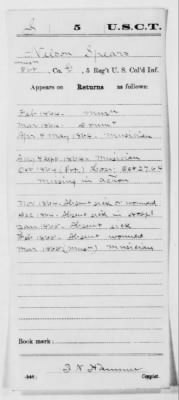 S 5 U.S.C.T.
Nelson Spears
Pvt, Co. , 5 Reg't U. S. Col'd Inf.
Appears on
Returns as follows:
Feb 1864. Mus'n
Mar 1864
Apr & May 1864. Musician
Sept 1864. Musician
Oct 1864 Loss: Oct 27.64
Missing in action
Nov 1864. Absent sick or wound
Dec 1864. Absent sick in Hospl
Jan 1865. Absent sick
Feb 1865. Absent wounded
Mar 1865 (Mus'n) Musician
Book mark:
(546) Copyist.